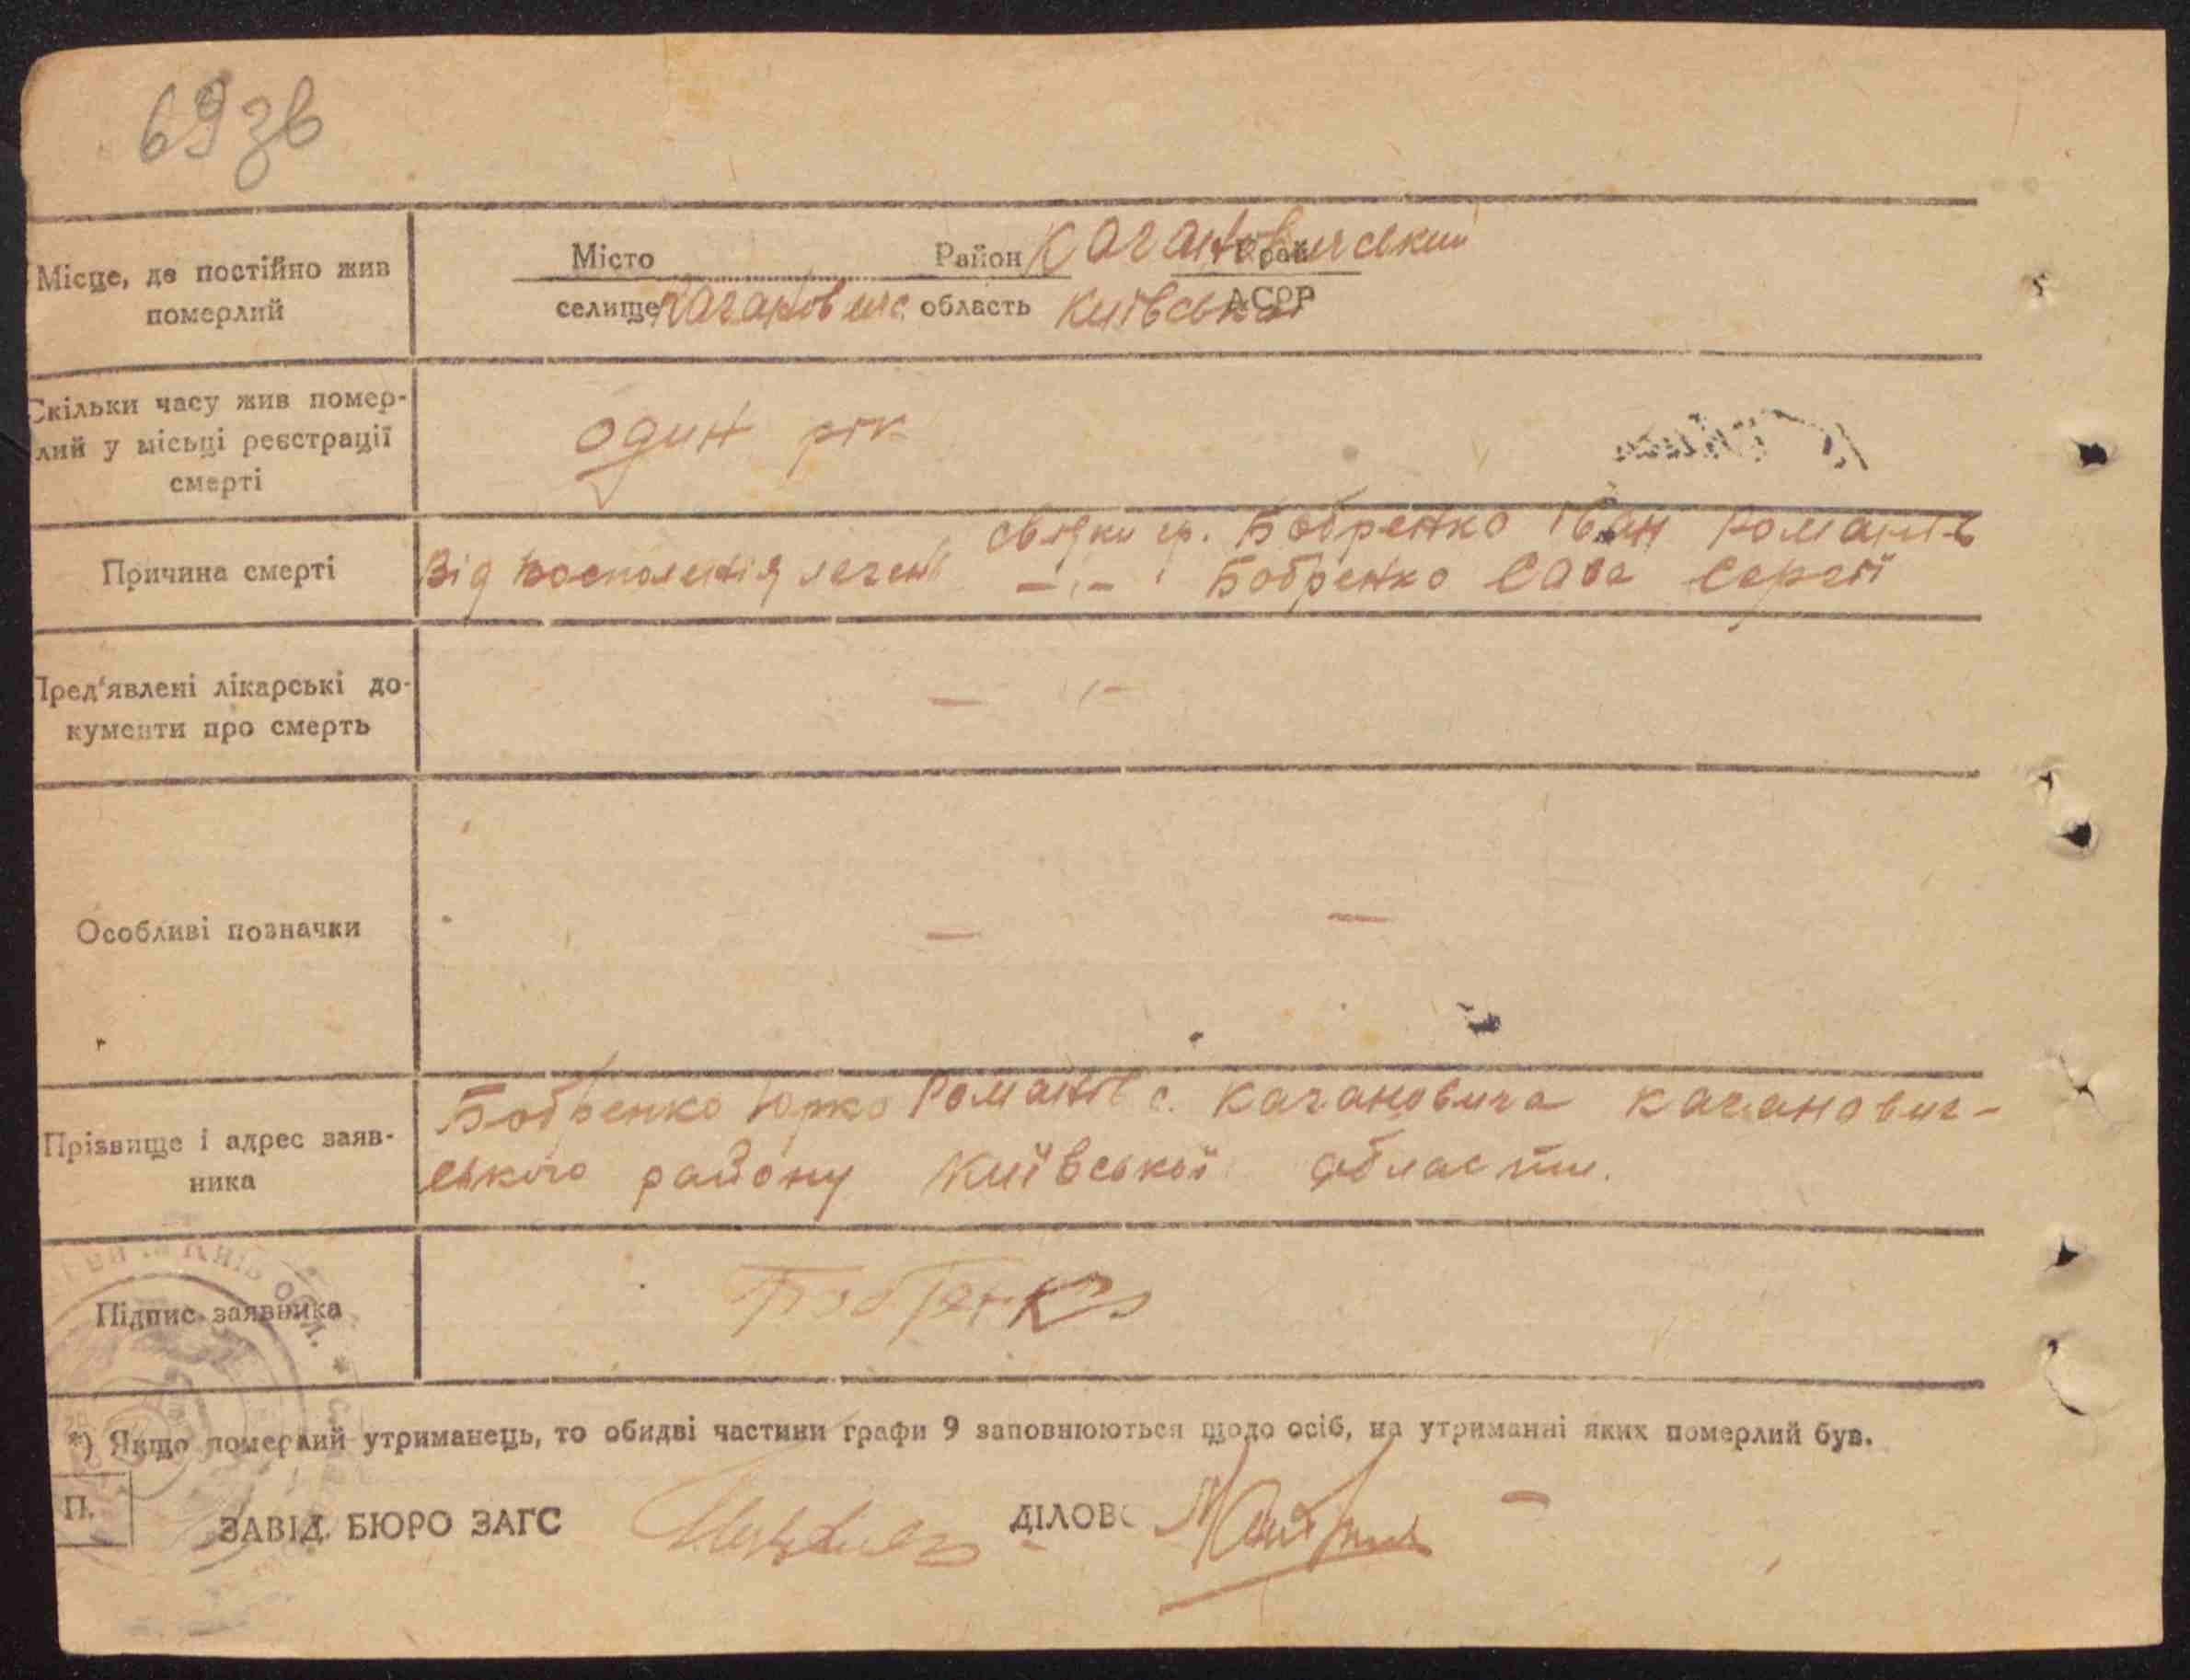 69 зв
Місце, де постійно жив
померлий
Місто Район Кагановичський Край
селище Кагановичс область Київська АСРР
Скільки часу жив помер-
лий у місьці реєстрації
смерті
один рік
Причина смерті
Від восполенія легень
свідки гр. Бобренко Іван Романів
—„— Бобренко Сава Сергій
Пред'явлені лікарські до-
кументи про смерть
— „ —
Особливі позначки
— —
Прізвище і адрес заяв-
ника
Бобренко Юрко Романів с. Кагановича Каганович-
ського району Київської області.
Підпис заявника
Бобренко
*) Якщо померлий утриманець, то обидві частини графи 9 заповнюються щодо осіб, на утриманні яких померлий був.
П.
ЗАВІД. БЮРО ЗАГС ДІЛОВ